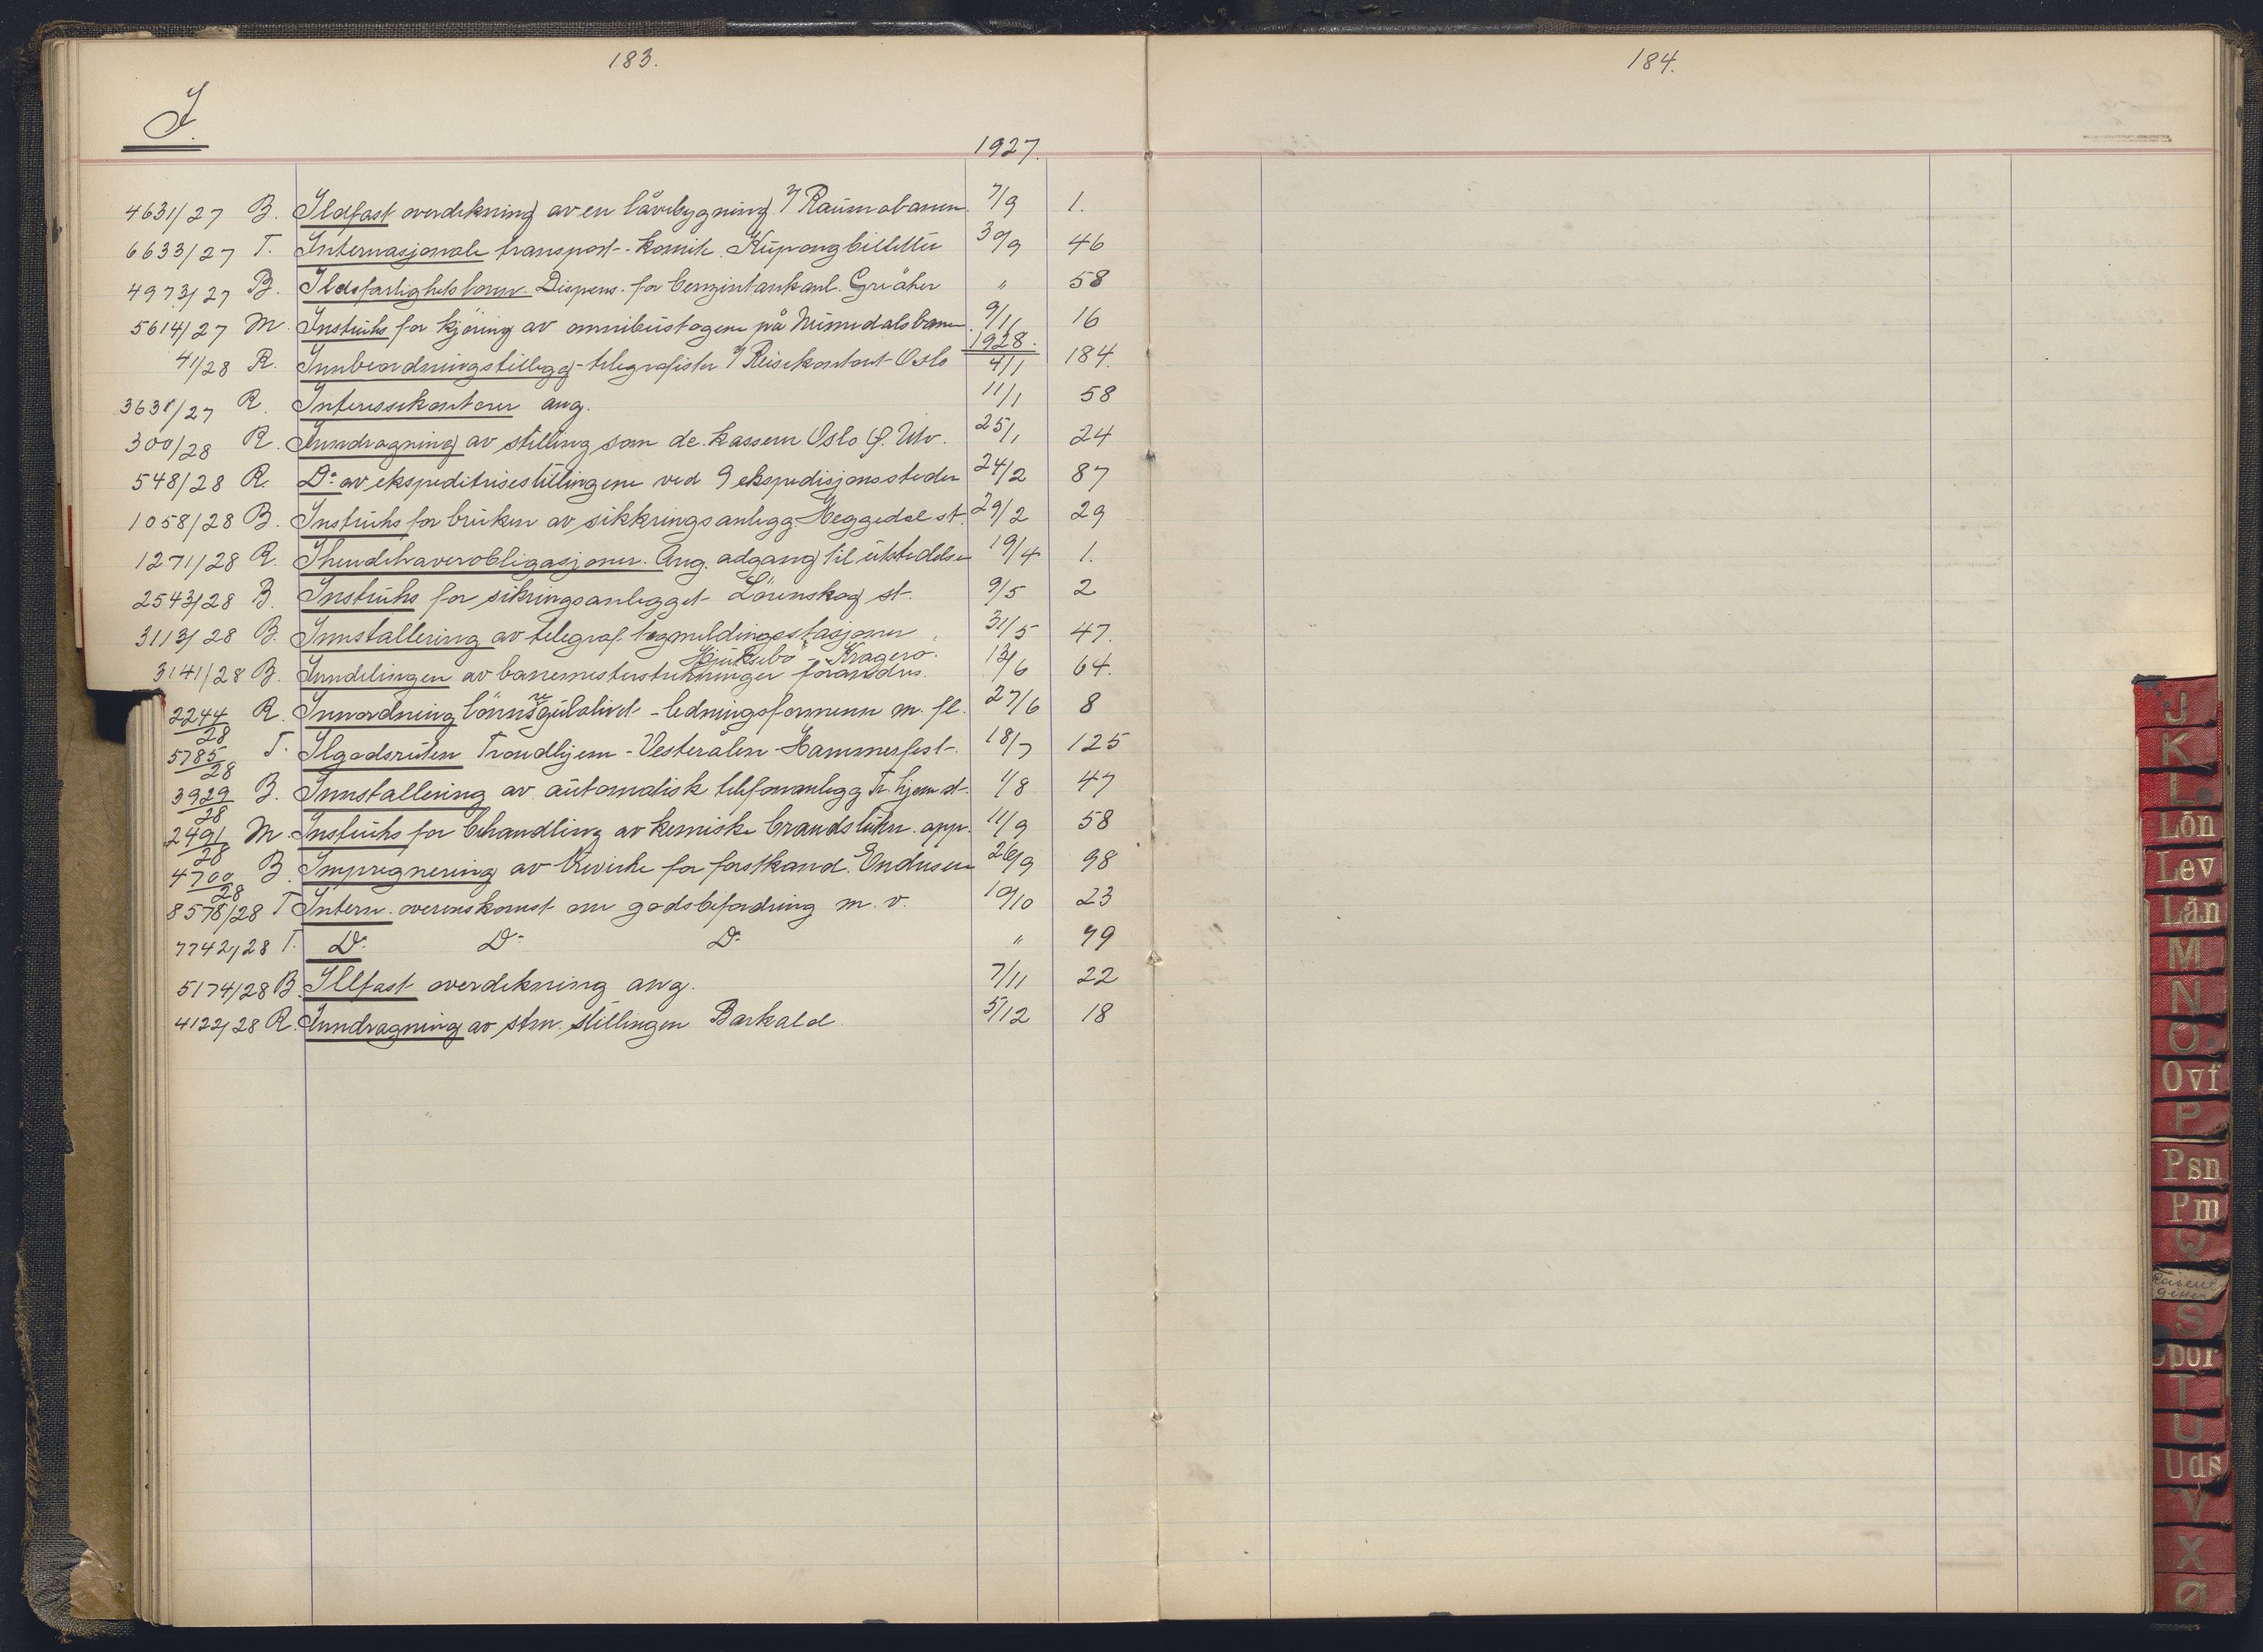 183.
184.
I.
1927.
4631/27 B. Ildfast overdekning av en låvebygning v/ Raumabanen 7/9 1.
6633/27 T. Internasjonale transport-komite. Kupongbilletter 30/9 46
4973/27 B. Ildsfarlighetsloven. Dispens. for benzintankanl. Greåker " 58
5614/27 M. Instruks for kjöring av omnibustogene på Numedalsbanen. 9/11 16
1928.
41/28 R. Innbeordningstillegg - telegrafister v/ Reisekontoret Oslo 4/1 184.
3631/27 R. Interessekontorer ang. 11/1 58
300/28 R. Inndragning av stilling som de. kasserer Oslo Ø. Utv. 25/1 24
548/28 R. Do av ekspeditrisestillingene ved 9 ekspedisjonssteder 24/2 87
1058/28 B. Instruks for bruken av sikkringsanlegg. Heggedal st. 29/2 29
1271/28 R. Ihendehaverobligasjoner. Ang. adgang til utstedelse 19/4 1.
2543/28 B. Instruks for sikringsanlegget Lörenskog st. 9/5 2
3113/28 B. Innstallering av telegraf. togmeldingsstasjoner 31/5 47.
Hjuksebö - Kragerö.
3141/28 B. Inndelingen av banemesterstrekninger forandres. 13/6 64.
2244/28 R. Innordning lönnsregulativet - ledningsformenn m. fl. 27/6 8
5785/28 T. Ilgodsruten Trondhjem - Vesterålen - Hammerfest. 18/7 125
3929/28 B. Innstallering av automatisk telefonanlegg Tr.hjem st. 1/8 47
2491/28 M. Instruks for behandling av kemiske brandslukn. app. 11/9 58
4700/28 B. Impregnering av trevirke for forstkand. Endresen 26/9 98
8578/28 T Intern. overenskomst om godsbefordring m. v. 10/10 23
7742/28 T. Do Do Do " 79
5174/28 B. Illfast overdekning ang. 7/11 22
4122/28 R. Inndragning av stm. stillingen Barkald. 5/12 18
J
K
L
Lön
Lev
Lån
M
N
O
Ovf
P
Psn
Pm
Q
S
T
U
Uds
V
X
Ø